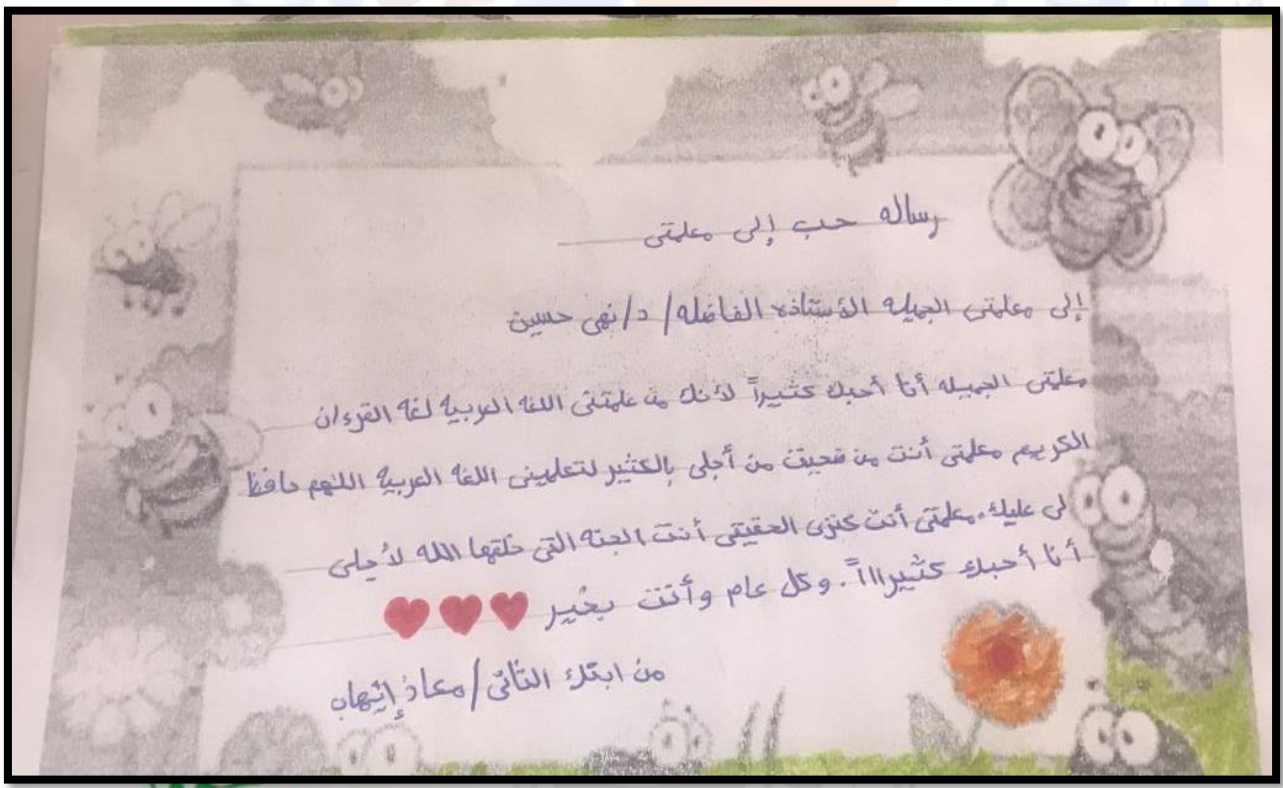 رساله حب إلى معلمتى
إلى معلمتى الجميله الأستاذه الفاضله/ د/نهى حسين
معلمتى الجميله أنا أحبك كثيراً لأنك من علمتنى اللغة العربية لغة القرءان
الكريم معلمتى أنت من ضحيت من أجلى بالكثير لتعلمينى اللغة العربية اللهم حافظ
لى عليك. معلمتى أنت كنزى الحقيقى أنت الجنة التى خلقها الله لأجلى
أنا أحبك كثيرااااً. وكل عام وأنت بخير
من ابنك الثانى/معاذ إيهاب